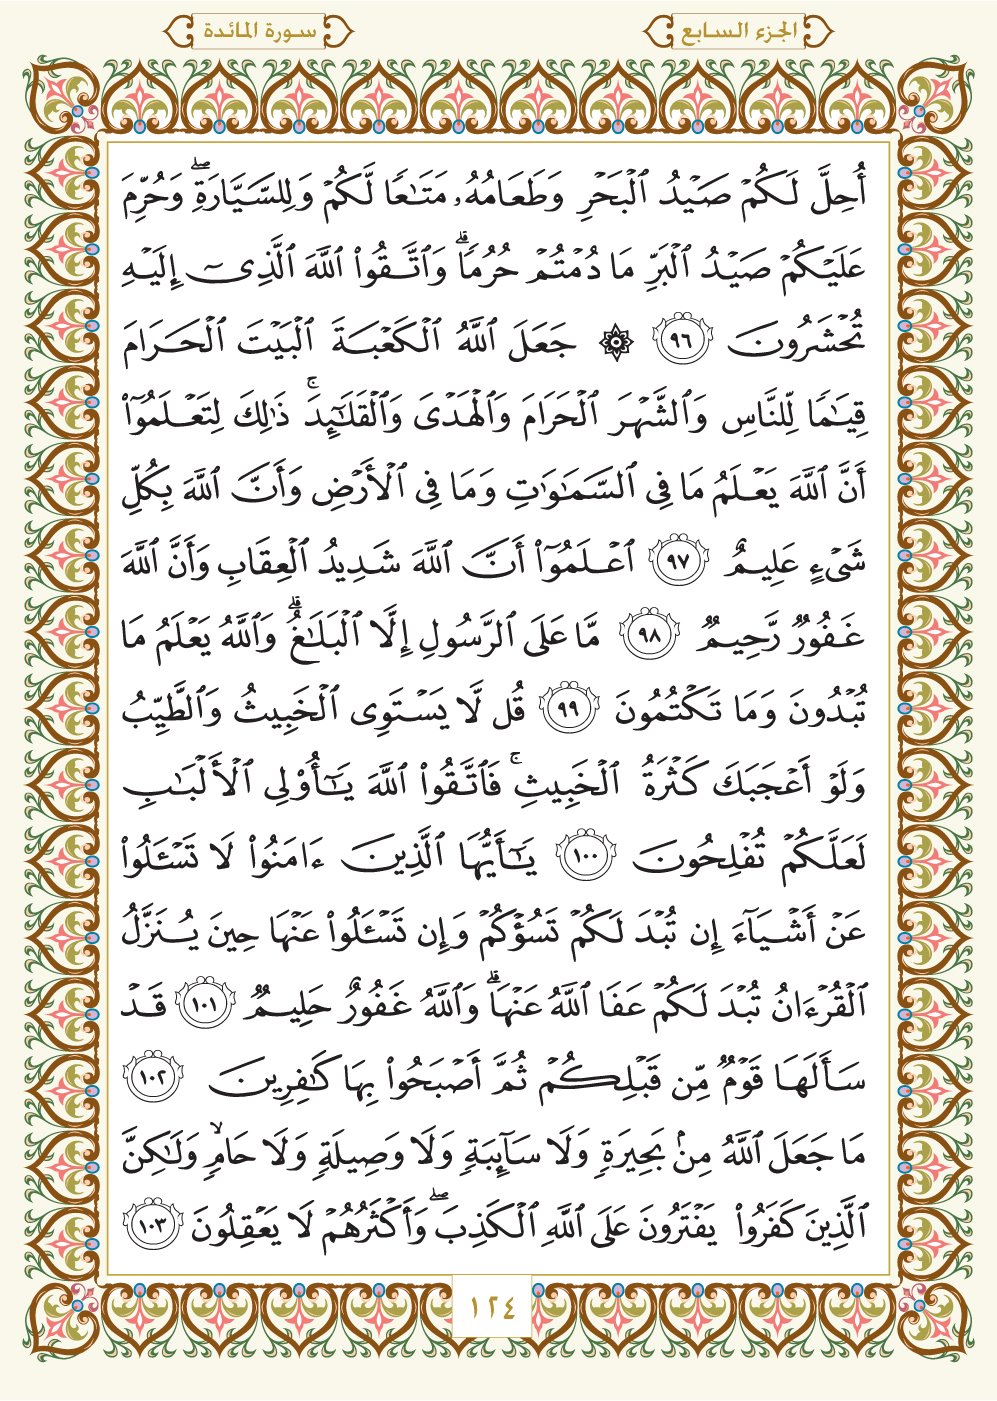 الجزء السابع
سورة المائدة
أُحِلَّ لَكُمۡ صَيۡدُ ٱلۡبَحۡرِ وَطَعَامُهُۥ مَتَٰعٗا لَّكُمۡ وَلِلسَّيَّارَةِۖ وَحُرِّمَ
عَلَيۡكُمۡ صَيۡدُ ٱلۡبَرِّ مَا دُمۡتُمۡ حُرُمٗاۗ وَٱتَّقُواْ ٱللَّهَ ٱلَّذِيٓ إِلَيۡهِ
تُحۡشَرُونَ ٩٦ ۞ جَعَلَ ٱللَّهُ ٱلۡكَعۡبَةَ ٱلۡبَيۡتَ ٱلۡحَرَامَ
قِيَٰمٗا لِّلنَّاسِ وَٱلشَّهۡرَ ٱلۡحَرَامَ وَٱلۡهَدۡيَ وَٱلۡقَلَٰٓئِدَۚ ذَٰلِكَ لِتَعۡلَمُوٓاْ
أَنَّ ٱللَّهَ يَعۡلَمُ مَا فِي ٱلسَّمَٰوَٰتِ وَمَا فِي ٱلۡأَرۡضِ وَأَنَّ ٱللَّهَ بِكُلِّ
شَيۡءٍ عَلِيمٌ ٩٧ ٱعۡلَمُوٓاْ أَنَّ ٱللَّهَ شَدِيدُ ٱلۡعِقَابِ وَأَنَّ ٱللَّهَ
غَفُورٞ رَّحِيمٞ ٩٨ مَّا عَلَى ٱلرَّسُولِ إِلَّا ٱلۡبَلَٰغُۗ وَٱللَّهُ يَعۡلَمُ مَا
تُبۡدُونَ وَمَا تَكۡتُمُونَ ٩٩ قُل لَّا يَسۡتَوِي ٱلۡخَبِيثُ وَٱلطَّيِّبُ
وَلَوۡ أَعۡجَبَكَ كَثۡرَةُ ٱلۡخَبِيثِۚ فَٱتَّقُواْ ٱللَّهَ يَٰٓأُوْلِي ٱلۡأَلۡبَٰبِ
لَعَلَّكُمۡ تُفۡلِحُونَ ١٠٠ يَٰٓأَيُّهَا ٱلَّذِينَ ءَامَنُواْ لَا تَسۡـَٔلُواْ
عَنۡ أَشۡيَآءَ إِن تُبۡدَ لَكُمۡ تَسُؤۡكُمۡ وَإِن تَسۡـَٔلُواْ عَنۡهَا حِينَ يُنَزَّلُ
ٱلۡقُرۡءَانُ تُبۡدَ لَكُمۡ عَفَا ٱللَّهُ عَنۡهَاۗ وَٱللَّهُ غَفُورٌ حَلِيمٞ ١٠١ قَدۡ
سَأَلَهَا قَوۡمٞ مِّن قَبۡلِكُمۡ ثُمَّ أَصۡبَحُواْ بِهَا كَٰفِرِينَ ١٠٢
مَا جَعَلَ ٱللَّهُ مِنۢ بَحِيرَةٖ وَلَا سَآئِبَةٖ وَلَا وَصِيلَةٖ وَلَا حَامٖ وَلَٰكِنَّ
ٱلَّذِينَ كَفَرُواْ يَفۡتَرُونَ عَلَى ٱللَّهِ ٱلۡكَذِبَۖ وَأَكۡثَرُهُمۡ لَا يَعۡقِلُونَ ١٠٣
١٢٤